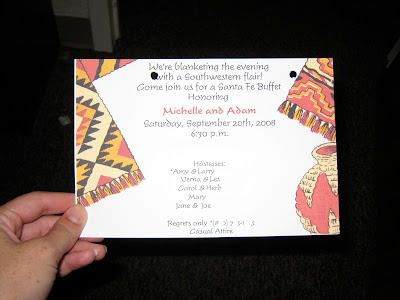 We're blanketing the evening
with a Southwestern flair!
Come join us for a Santa Fe Buffet
Honoring
Michelle and Adam
Saturday, September 20th, 2008
6:30 p.m.
Hostesses:
Amy & Larry
Verna & Les
Carol & Herb
Mary
Jane & Joe
Regrets only
Casual Attire